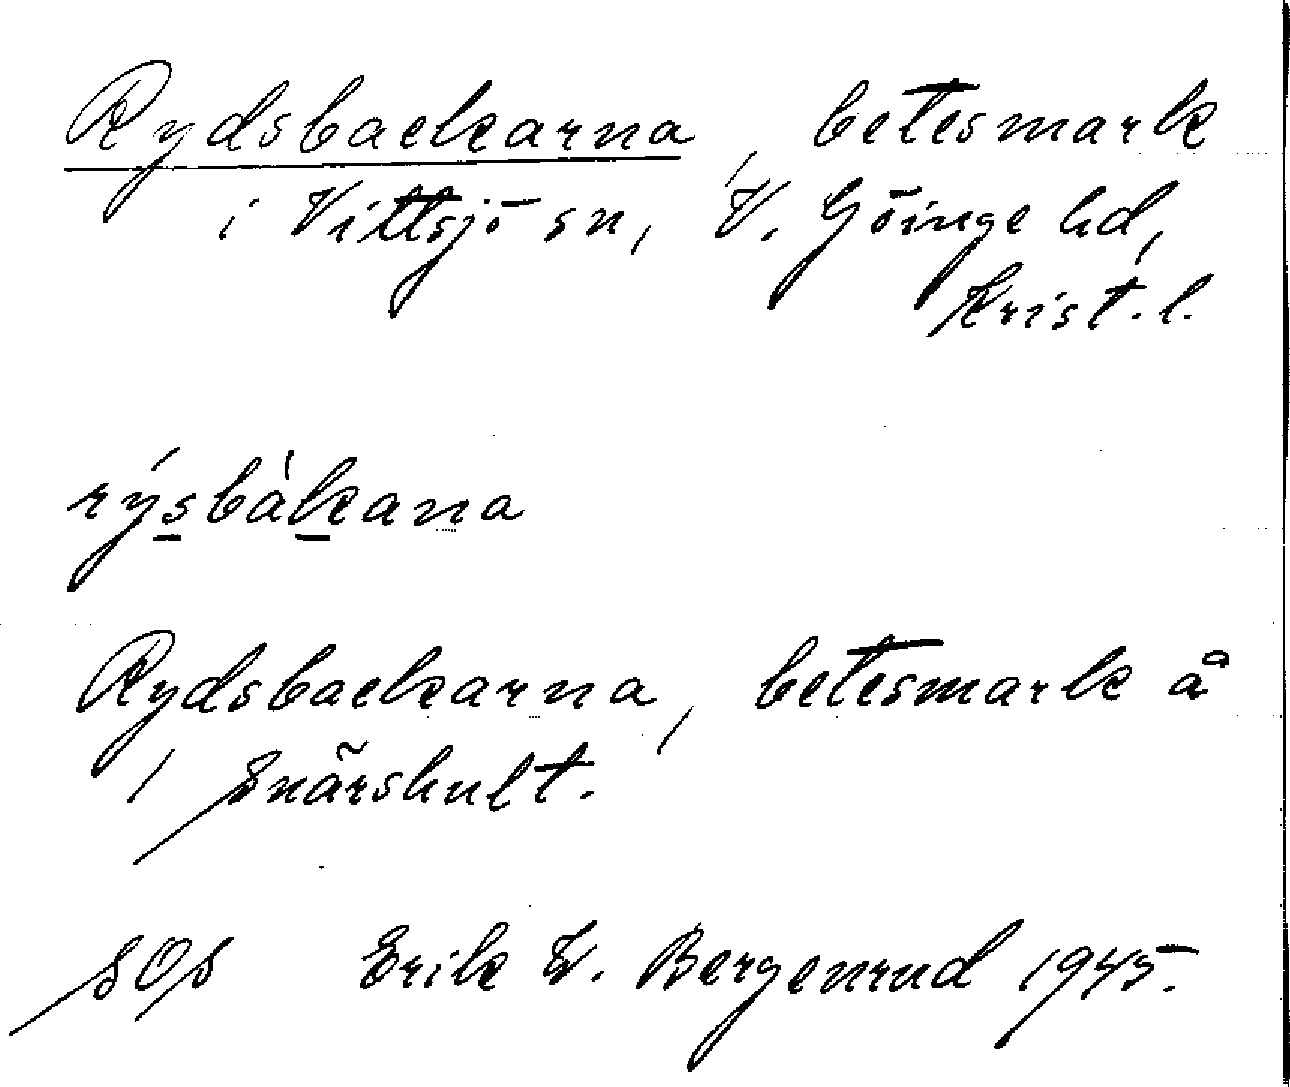 Rydsbackarna, betesmark
i Vittsjö sn, V. Göinge hd,
Krist. l.
rýsbàkana
Rydsbackarna, betesmark å
/ Snärshult.
SOS Erik W. Bergenrud 1945.